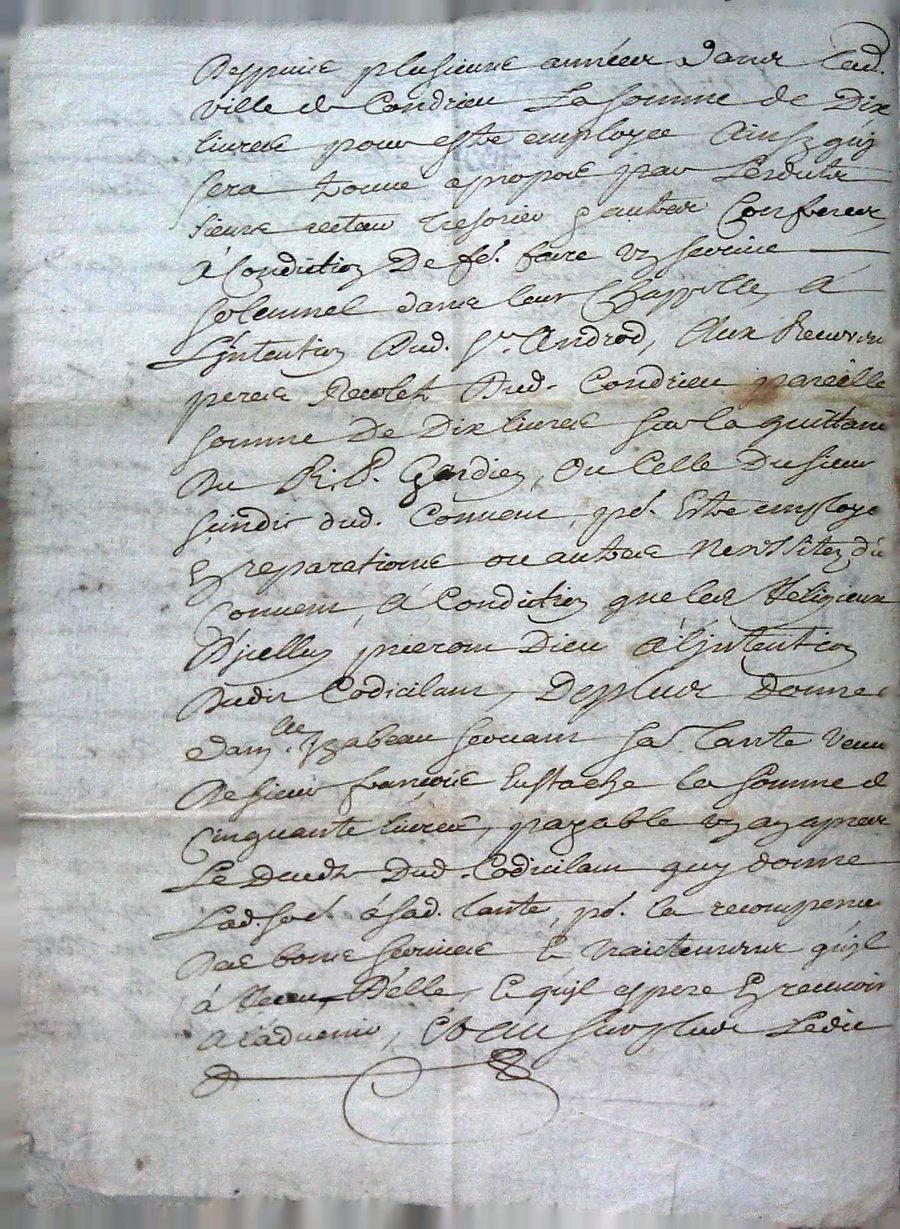 Depuis plusieurs années dans lad.
ville de Condrieu La somme de Dix
livres pour estre employee Ainsy quil
sera trouvé apropos par Lesdits
sieurs recteur tresorier & autres Confreres,
A Condition De fe. faire un service
solennel dans leur Chappelle A
L'jntention Dud. Sr. Androd, Aux Reverens
peres Recolets Dud. Condrieu pareille
somme De Dix livres sur la quittance
Du R. P. Gardien, Ou Celle Du sieur
sindic dud. Convent, pr. Estre employé
En reparations ou autres Nessitez du
Convent, A Condition que les Religieux
D'jcelluy prieront Dieu A l'jntention
Dudit Codicilant, De plus Donne a
dam.lle Yzabeau servant sa Tante veuve
De sieur françois Eustache la somme de
Cinquante livres, payable un an apres
Le Deceds Dud. Codicilant quy donne
Lad. so.e a sad. Tante, pr. la recompense
Des bons services & traitements qu'jl
à Receu D'elle, & qu'jl espere En recevoir
A l'advenir, Et Au surplus Ledit